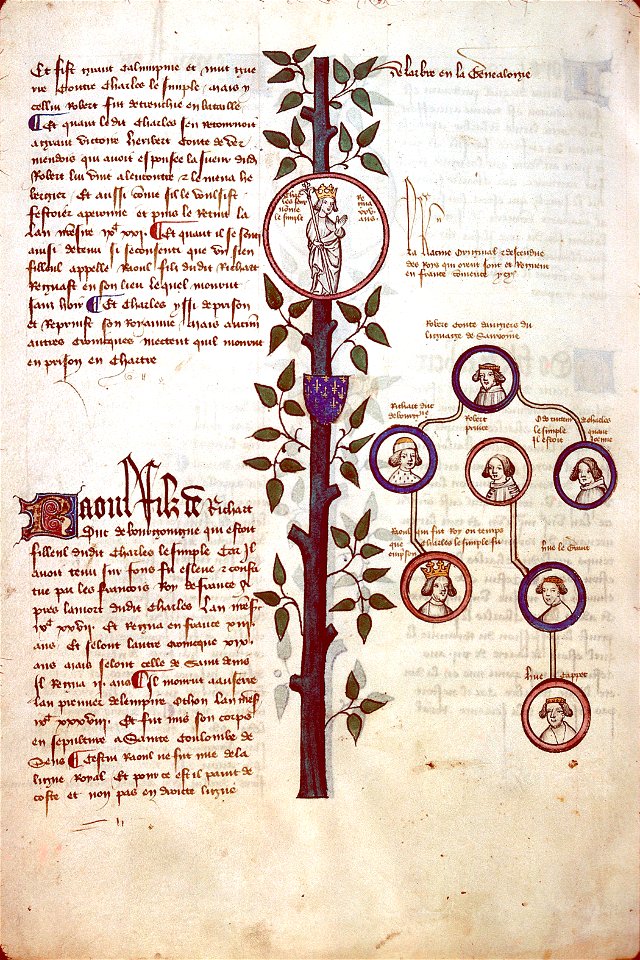 Et fist grant et mut gue
rre contre Charles le simple mais y
cellui Robert fut detrenchie en bataille
Et quant le dit Charles sen retournoit
a grant victoire heribert Conte de ver
mendois qui auoit espousee la sueur dud
Robert lui vint alencontre & le mena he
bergier Et aussi come sil le voulsist
festoier a peronne et puis le Retint la
Lan nre sr ixc xxi. Et quant il se senti
ainsi detenu il se consenti que vn sien
filleul appelle Raoul filz dudit Richart
Regnast en son lieu lequel mourut
sans hoir Et Charles yssi de prison
et Reprinst son Royaume Mais aucuns
autres Croniques mectent quil mourut
en prison en Chartre
Raoul filz de Richart
Duc de bourgongne qui estoit
filleul dudit Charles le simple Car Il
auoit tenu sur fons fu esleue & consti
tue par les francois Roy de france a
pres la mort dudit Charles Lan nre sr
ixc xxvii Et Regna en france xiii
ans Et selont lautre Cronique xii
ans mais selont celle de Saint denis
Il Regna ii ans Il mourut aaucerre
Lan premier de lempire Othon Lan nre sr
ixc xxxviii Et fut mis son corps
en sepulture a Sainte Coulombe de
Sens Cestui Raoul ne fut mie de la
ligne Royal Et pour ce est il paint de
coste et non pas en droicte ligne
de larbre en la Genealogie
Char
les
nomme
le simple
Re
gna
xxv
ans
La Racine Original & descendue
des Roys qui orent sont et Regnent
en france comence ycy
Robert Conte daungiers du
lignaige de Saxonne
Richart duc
de bourgne
Robert
prince
Ode tuteur de charles
le simple quant
il estoit Joenne
Raoul qui fut Roy ou temps
que Charles le simple fu
en prison
hue le Grant
hue Cappet